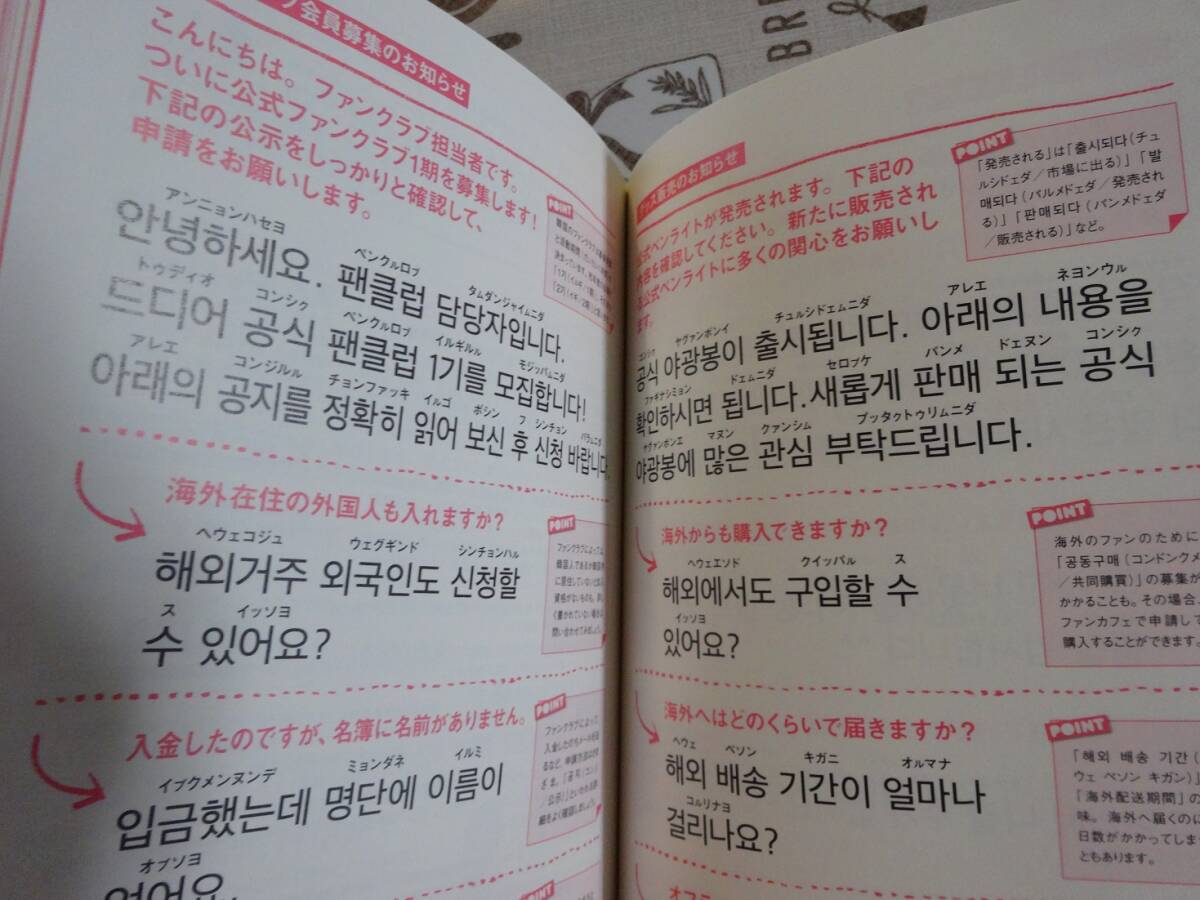 会員募集のお知らせ
こんにちは。ファンクラブ担当者です。
ついに公式ファンクラブ1期を募集します!
下記の公示をしっかりと確認して、
申請をお願いします。
アンニョンハセヨ ペンクルロプ タムダンジャイムニダ
안녕하세요. 팬클럽 담당자입니다.
トゥディオ コンシク ペンクルロプ イルギルル モジッパムニダ
드디어 공식 팬클럽 1기를 모집합니다!
アレエ コンジルル チョンファッキ イルゴ ボシン フ シンチョン パラムニダ
아래의 공지를 정확히 읽어 보신 후 신청 바랍니다
POINT
海外在住の外国人も入れますか?
ヘウェコジュ ウェグギンド シンチョンハル
해외거주 외국인도 신청할
ス イッソヨ
수 있어요?
POINT
入金したのですが、名簿に名前がありません。
イプクメンヌンデ ミョンダネ イルミ
입금했는데 명단에 이름이
オプソヨ
없어요.
POINT
POINT
ズ販売のお知らせ
公式ペンライトが発売されます。下記の
内容を確認してください。新たに販売され
る公式ペンライトに多くの関心をお願いし
ます。
POINT
「発売される」は「출시되다(チュ
ルシドェダ/市場に出る)」「발
매되다(パルメドェダ/発売され
る)」「판매되다(パンメドェダ
/販売される)」など。
コンシク ヤグァンボンイ チュルシドェムニダ アレエ ネヨンウル
공식 야광봉이 출시됩니다. 아래의 내용을
ファギナシミョン ドェムニダ セロッケ パンメ ドェヌン コンシク
확인하시면 됩니다.새롭게 판매 되는 공식
ヤグァンボンエ マヌン クァンシム プッタクトゥリムニダ
야광봉에 많은 관심 부탁드립니다.
海外からも購入できますか?
ヘウェエソド クイッパル ス
해외에서도 구입할 수
イッソヨ
있어요?
POINT
海外のファンのために
「공동구매(コンドンクメ
/共同購買)」の募集が
かかることも。その場合、
ファンカフェで申請して
購入することができます。
海外へはどのくらいで届きますか?
ヘウェ ベソン キガニ オルマナ
해외 배송 기간이 얼마나
コルリナヨ
걸리나요?
POINT
「해외 배송 기간(
ウェ ベソン キガン)」
「海外配送期間」の
味。海外へ届くのに
日数がかかってしま
ともあります。
BRE